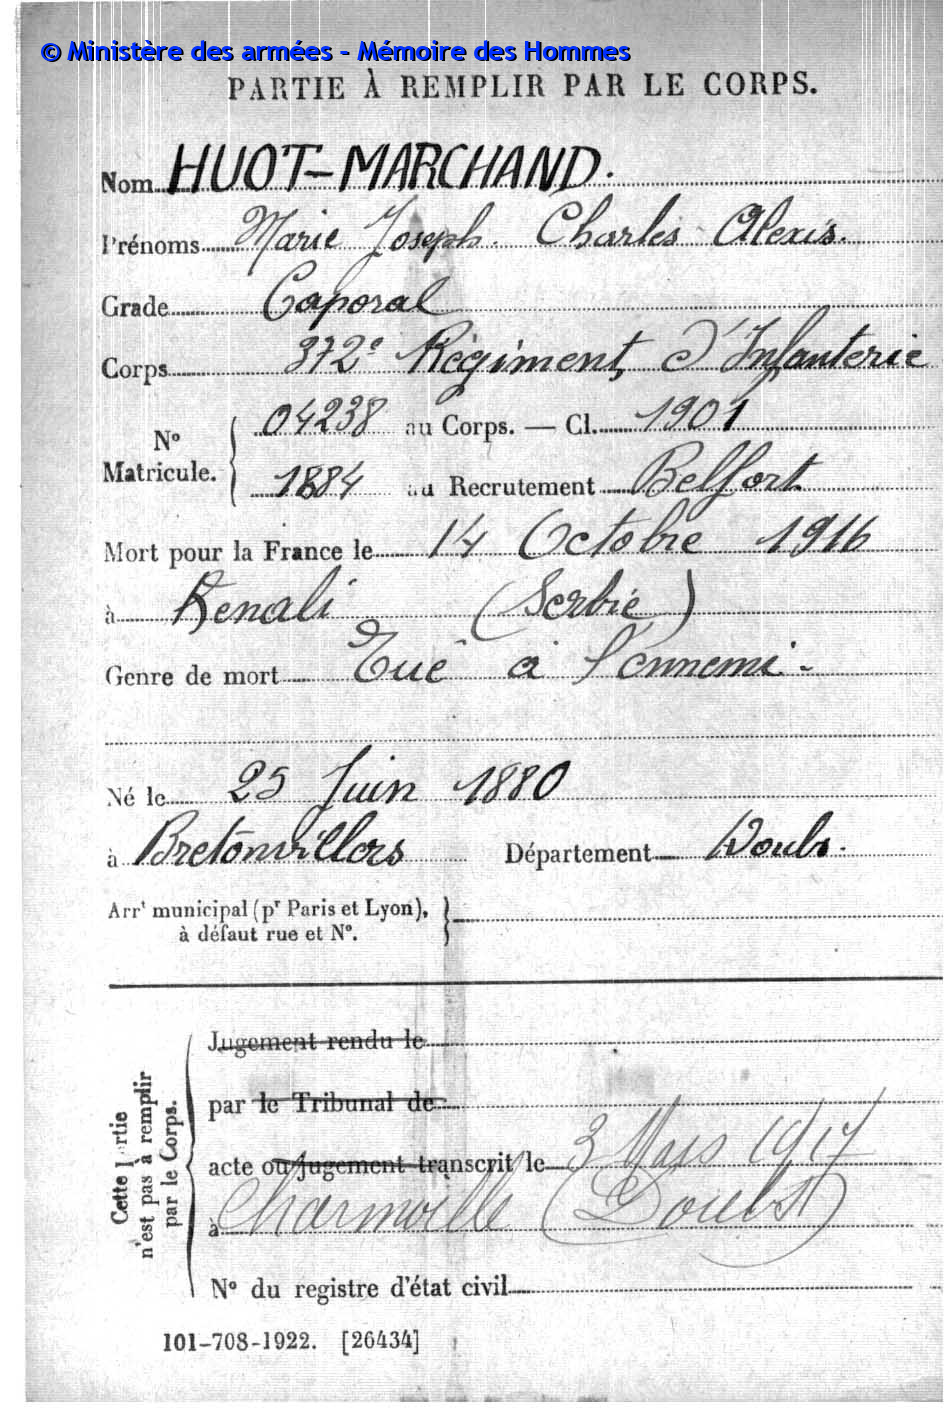 © Ministère des armées - Mémoire des Hommes
PARTIE À REMPLIR PAR LE CORPS.
Nom HUOT-MARCHAND.
Prénoms Marie Joseph. Charles Alexis.
Grade Caporal
Corps 372e Régiment d'Infanterie
No Matricule. { 04238 au Corps. — Cl. 1901
1884 au Recrutement Belfort
Mort pour la France le 14 Octobre 1916
à Kenali (Serbie)
Genre de mort Tué à l'ennemi -
Né le 25 Juin 1880
à Bretonvillers Département Doubs.
Arrt municipal (pr Paris et Lyon),
à défaut rue et No.
Cette Partie
n'est pas à remplir
par le Corps.
Jugement rendu le
par le Tribunal de
acte ou jugement transcrit le 3 Mars 1917
à Charmoille (Doubs)
No du registre d'état civil
101-708-1922. [26434]